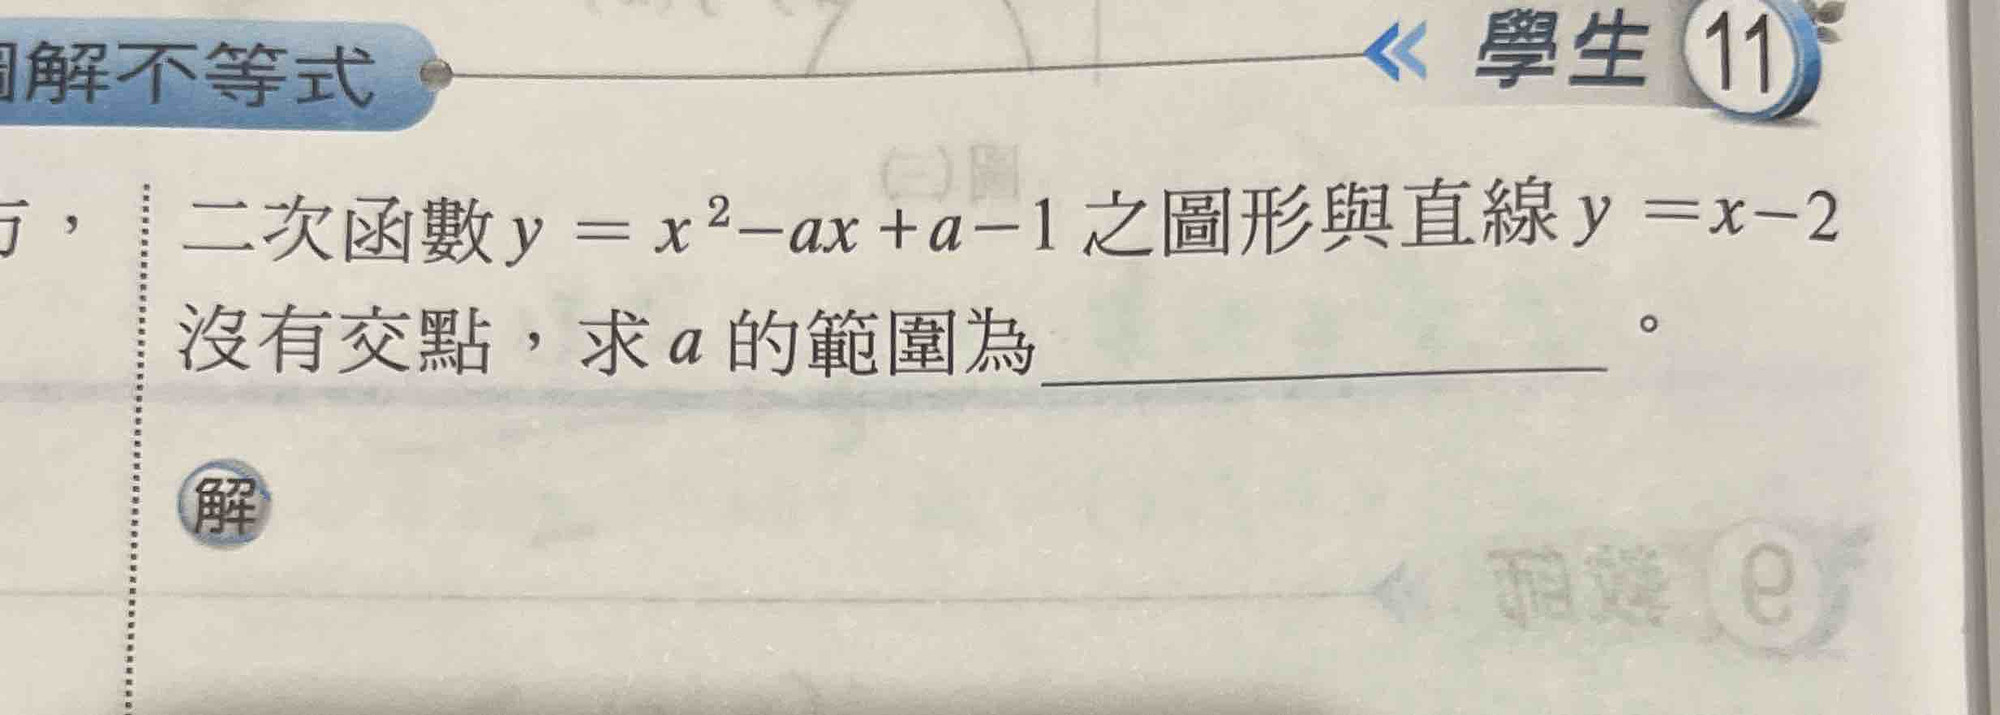 解不等式
學生 11
，
二次函數 y = x²−ax+a−1 之圖形與直線 y =x−2
沒有交點，求 a 的範圍為＿＿＿＿＿＿。
解